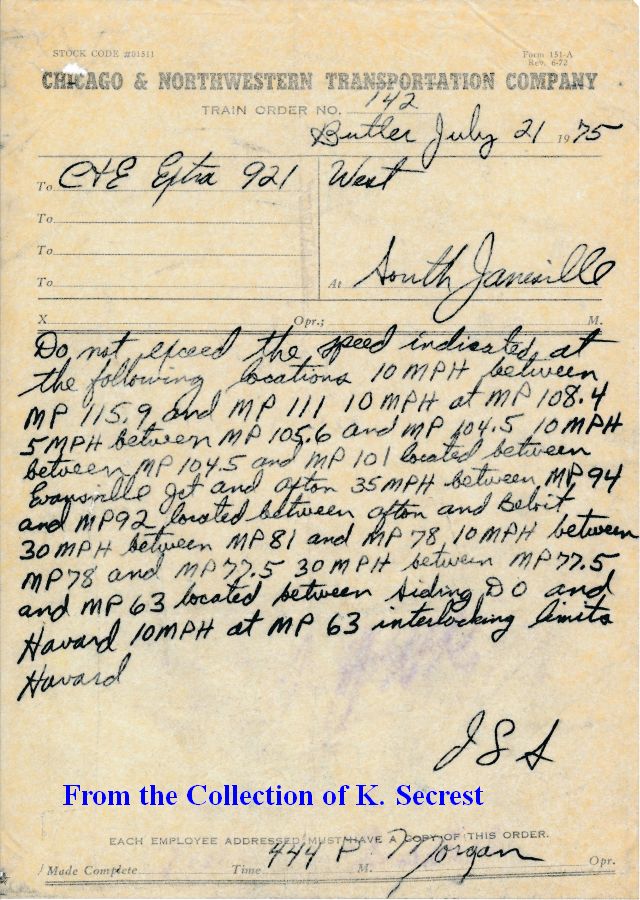 STOCK CODE #01511
Form 151-A
Rev. 6-72
CHICAGO & NORTHWESTERN TRANSPORTATION COMPANY
TRAIN ORDER NO. 142
Butler July 21 1975
To C&E Extra 921 West
To
To
To At South Janesville
X Opr.; M.
Do not exceed the speed indicated at
the following locations 10 MPH between
MP 115.9 and MP 111 10 MPH at MP 108.4
5 MPH between MP 105.6 and MP 104.5 10 MPH
between MP 104.5 and MP 101 located between
Evansville Jct and Afton 35 MPH between MP 94
and MP 92 located between Afton and Beloit
30 MPH between MP 81 and MP 78, 10 MPH between
MP 78 and MP 77.5 30 MPH between MP 77.5
and MP 63 located between Siding D O and
Havard 10 MPH at MP 63 interlocking limits
Havard
J S S
From the Collection of K. Secrest
EACH EMPLOYEE ADDRESSED MUST HAVE A COPY OF THIS ORDER.
Made Complete Time 444 P M. Morgan Opr.